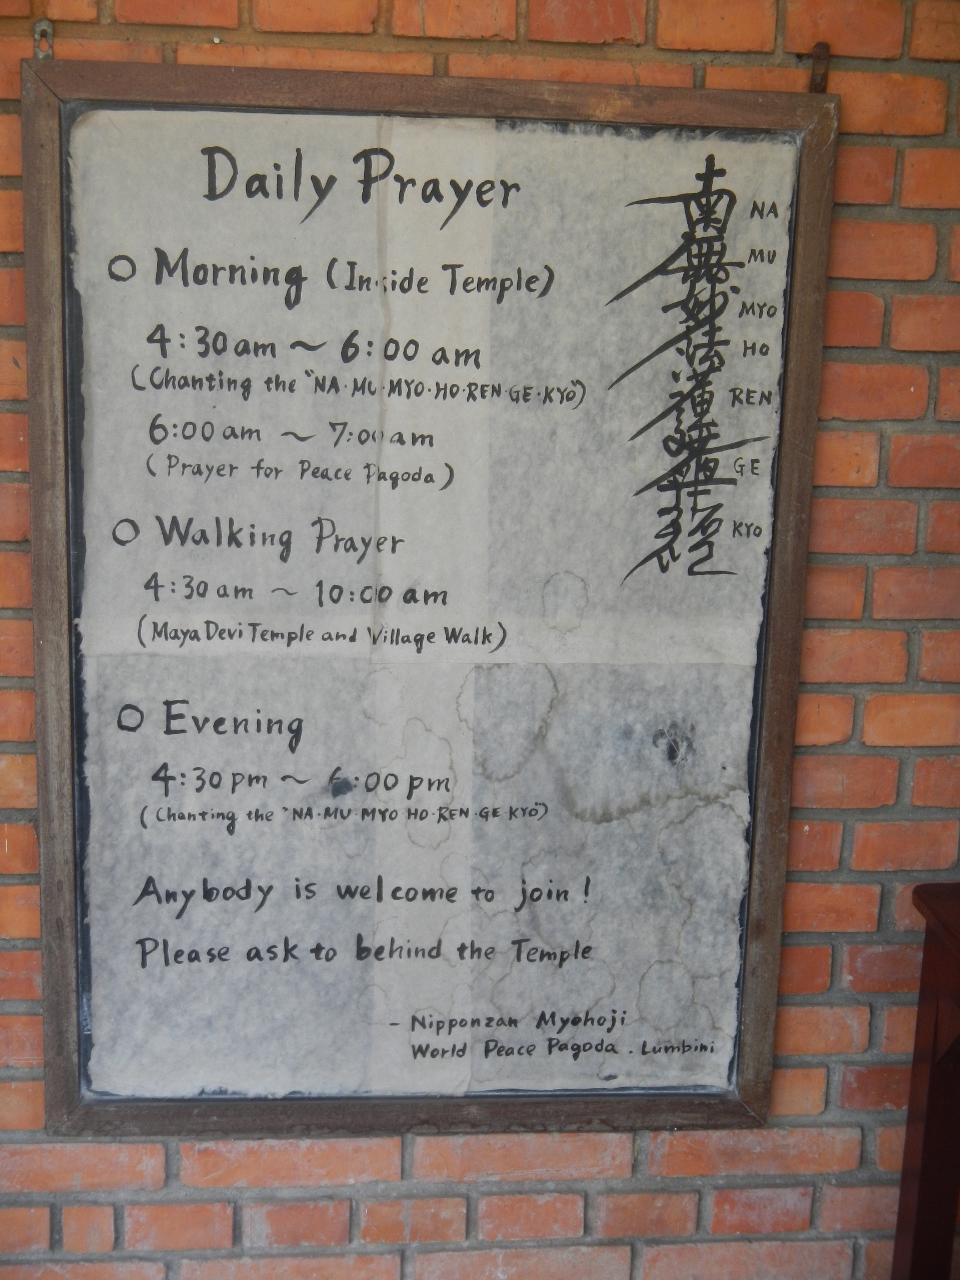 Daily Prayer
○ Morning (Inside Temple)
4:30 am ~ 6:00 am
(Chanting the "NA·MU·MYO·HO·REN·GE·KYO")
6:00 am ~ 7:00 am
(Prayer for Peace Pagoda)
○ Walking Prayer
4:30 am ~ 10:00 am
(Maya Devi Temple and Village Walk)
○ Evening
4:30 pm ~ 6:00 pm
(Chanting the "NA·MU·MYO HO·REN·GE KYO")
Anybody is welcome to join!
Please ask to behind the Temple
- Nipponzan Myohoji
World Peace Pagoda. Lumbini
南無妙法蓮華経
NA
MU
MYO
HO
REN
GE
KYO